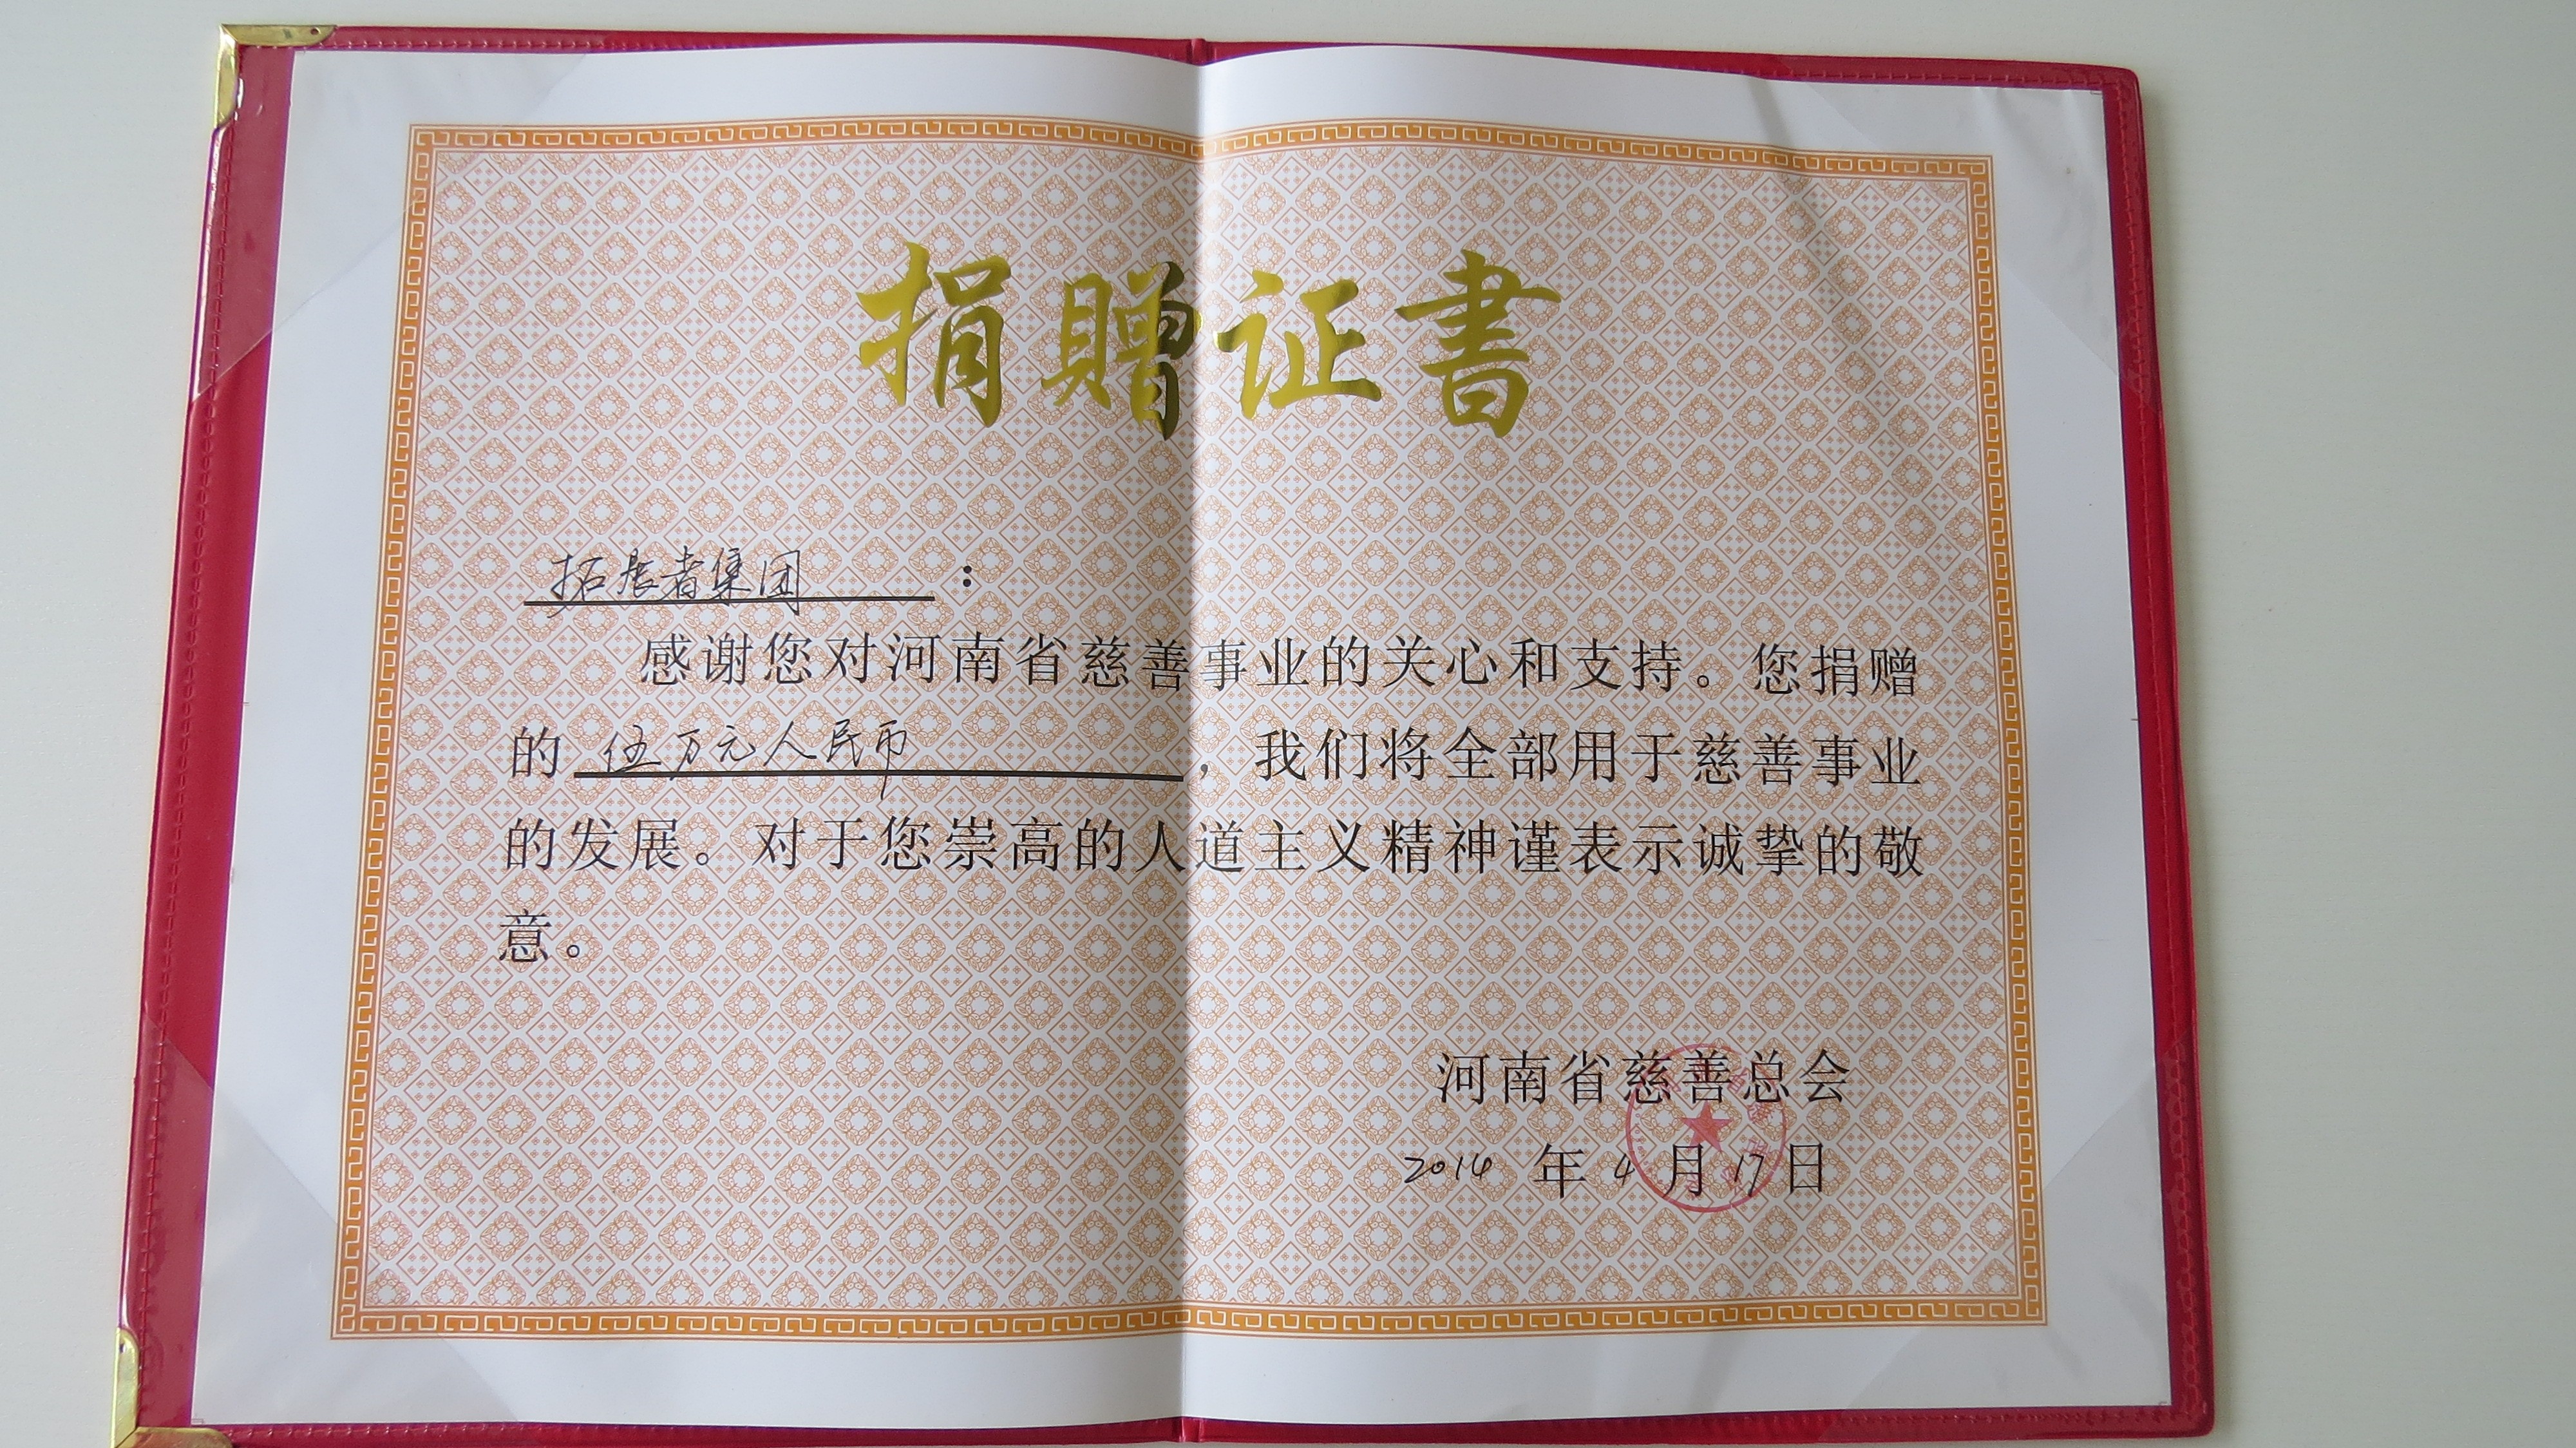 捐赠证書
拓展者集团：
感谢您对河南省慈善事业的关心和支持。您捐赠
的伍万元人民币，我们将全部用于慈善事业
的发展。对于您崇高的人道主义精神谨表示诚挚的敬
意。
河南省慈善总会
2014年4月17日